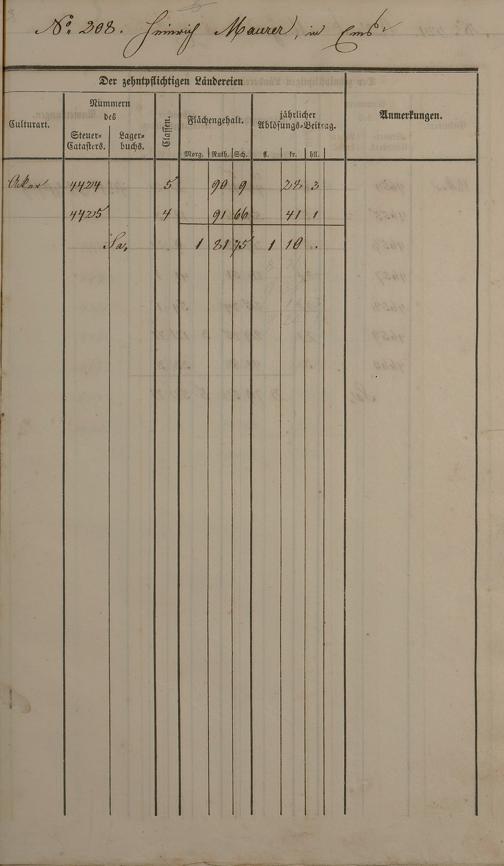 No. 208. Heinrich Maurer, in Ems
Der zehntpflichtigen Ländereien
Culturart. Nummern des Classen. Flächengehalt. jährlicher Ablösungs-Beitrag. Anmerkungen.
Steuer-Catasters. Lager-buchs.
Morg. Ruth. Sch. fl. kr. hll.
Acker 4424 5 90 9 28 3
4425 4 91 66 41 1
Sa, 1 81 75 1 10 .